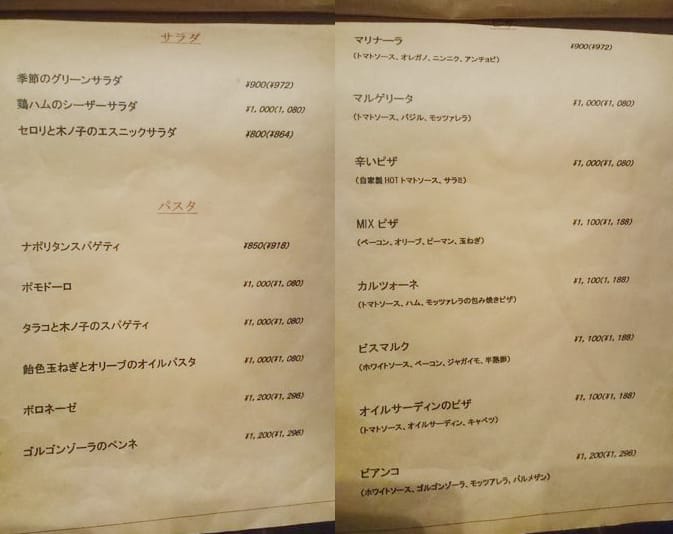 サラダ
季節のグリーンサラダ ¥900(¥972)
鶏ハムのシーザーサラダ ¥1,000(1,080)
セロリと木ノ子のエスニックサラダ ¥800(¥864)
パスタ
ナポリタンスパゲティ ¥850(¥918)
ポモドーロ ¥1,000(¥1,080)
タラコと木ノ子のスパゲティ ¥1,000(¥1,080)
飴色玉ねぎとオリーブのオイルパスタ ¥1,000(¥1,080)
ボロネーゼ ¥1,200(¥1,296)
ゴルゴンゾーラのペンネ ¥1,200(¥1,296)
マリナーラ ¥900(¥972)
(トマトソース、オレガノ、ニンニク、アンチョビ)
マルゲリータ ¥1,000(¥1,080)
(トマトソース、バジル、モッツァレラ)
辛いピザ ¥1,000(¥1,080)
(自家製HOTトマトソース、サラミ)
MIXピザ ¥1,100(¥1,188)
(ベーコン、オリーブ、ピーマン、玉ねぎ)
カルツォーネ ¥1,100(1,188)
(トマトソース、ハム、モッツァレラの包み焼きピザ)
ビスマルク ¥1,100(¥1,188)
(ホワイトソース、ベーコン、ジャガイモ、半熟卵)
オイルサーディンのピザ ¥1,100(¥1,188)
(トマトソース、オイルサーディン、キャベツ)
ビアンコ ¥1,200(¥1,296)
(ホワイトソース、ゴルゴンゾーラ、モッツアレラ、パルメザン)